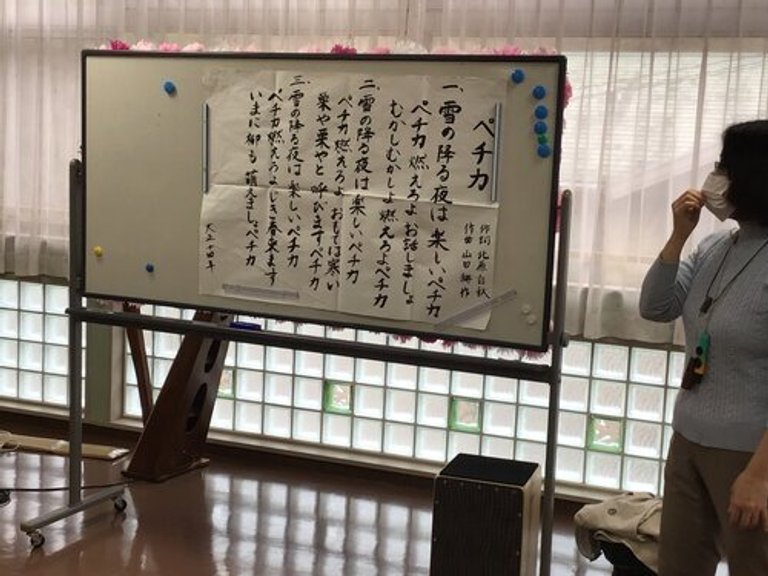 ペチカ
作詞 北原白秋
作曲 山田耕作
一、雪の降る夜は 楽しいペチカ
ペチカ 燃えろよ お話しましょ
むかしむかしよ 燃えろよペチカ
二、雪の降る夜は 楽しいペチカ
ペチカ燃えろよ おもては寒い
栗や栗やと 呼びますペチカ
三、雪の降る夜は 楽しいペチカ
ペチカ燃えろよ じき春来ます
いまに柳も 萌えましょペチカ
大正十四年